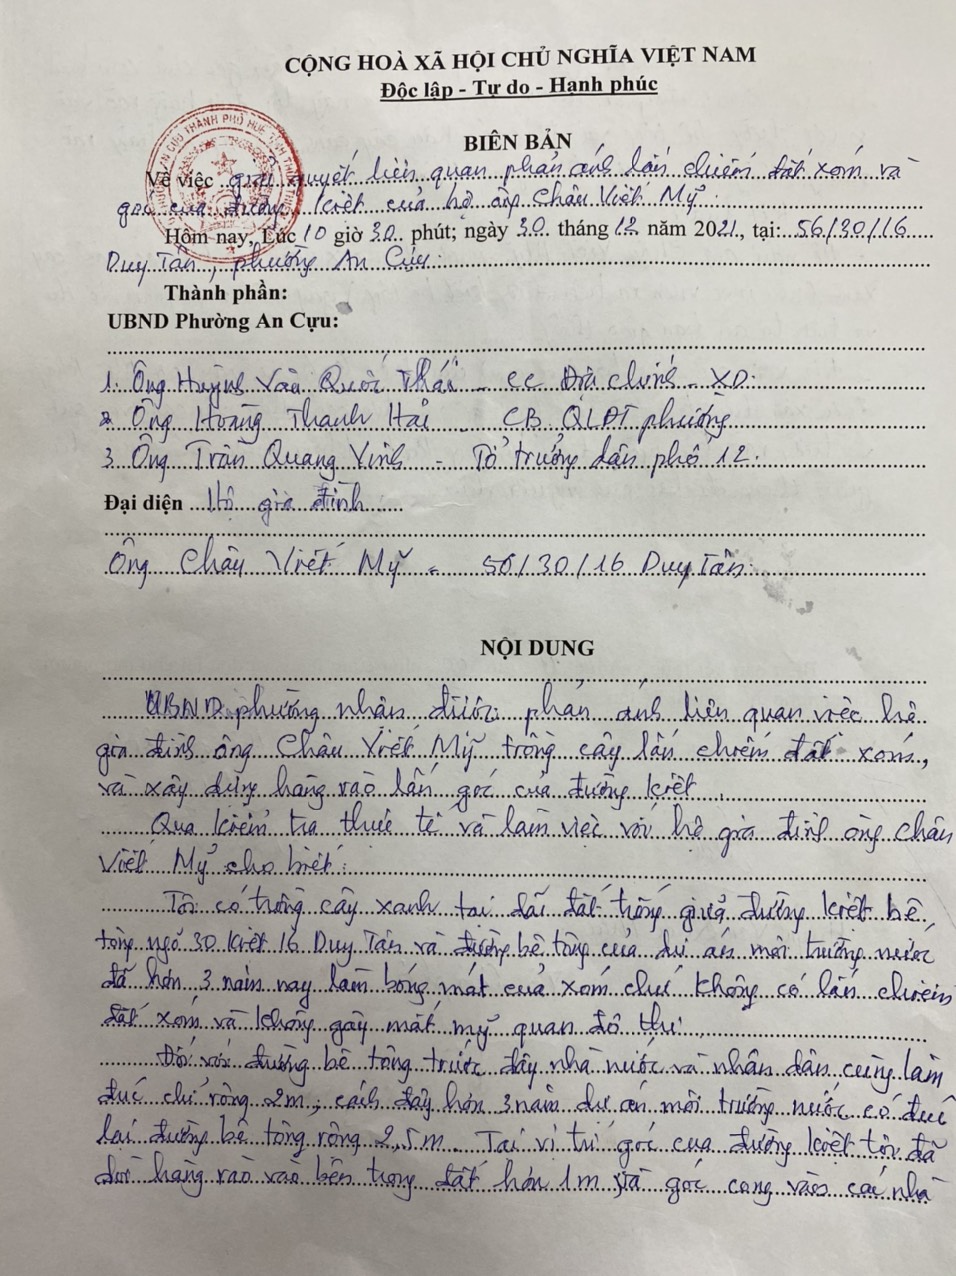 CỘNG HOÀ XÃ HỘI CHỦ NGHĨA VIỆT NAM
Độc lập - Tự do - Hạnh phúc
BIÊN BẢN
Về việc giải quyết liên quan phản ánh lấn chiếm đất xóm và
góc cua đường kiệt của hộ ông Châu Viết Mỹ.
Hôm nay, Lúc 10 giờ 30 phút; ngày 30 tháng 12 năm 2021, tại: 56/30/16
Duy Tân, phường An Cựu.
Thành phần:
UBND Phường An Cựu:
1. Ông Huỳnh Văn Quốc Thái - CC Địa chính - XD.
2. Ông Hoàng Thanh Hải - CB QLĐT phường
3. Ông Trần Quang Vinh - Tổ trưởng dân phố 12.
Đại diện Hộ gia đình
Ông Châu Viết Mỹ - 56/30/16 Duy Tân.
NỘI DUNG
UBND phường nhận được phản ánh liên quan việc hộ
gia đình ông Châu Viết Mỹ trồng cây lấn chiếm đất xóm,
và xây dựng hàng rào lấn góc cua đường kiệt.
Qua kiểm tra thực tế và làm việc với hộ gia đình ông Châu
Viết Mỹ cho biết:
Tôi có trồng cây xanh tại dãi đất trống giữa đường kiệt bê
tông ngõ 30 kiệt 16 Duy Tân và đường bê tông của dự án môi trường nước
đã hơn 3 năm nay làm bóng mát của xóm chứ không có lấn chiếm
đất xóm và không gây mất mỹ quan đô thị.
Đối với đường bê tông trước đây nhà nước và nhân dân cùng làm
đúc chỉ rộng 2m, cách đây hơn 3 năm dự án môi trường nước có đúc
lại đường bê tông rộng 2,5m. Tại vị trí góc cua đường kiệt tôi đã
dời hàng rào vào bên trong đất hơn 1m và góc cong vào các nhà